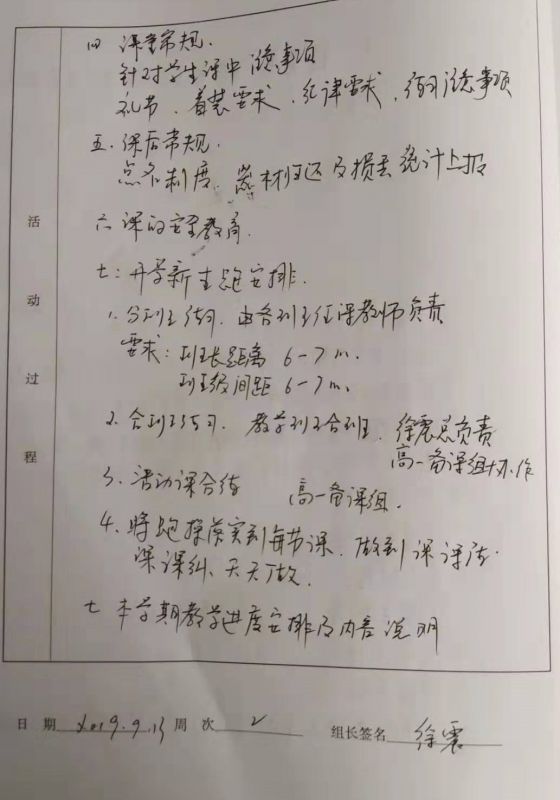 四 课堂常规.
针对学生课中注意事项
礼节、着装要求、纪律要求、练习注意事项
五.课后常规.
点名制度、器材归还及损丢统计上报
六 课的安全教育.
七:开学新生跑安排.
1、分班练习.由各班任课教师负责
要求:班长距离 6-7m.
班级间距 6-7m.
2.合班练习.教学班合班.徐震总负责
高一备课组协作
3.活动课合练 高一备课组.
4.将跑操落实到每节课.做到课课练.
课课纠、天天做.
七 本学期教学进度安排及内容说明
活动过程
日 期 2019.9.13 周 次 2 组长签名 徐震